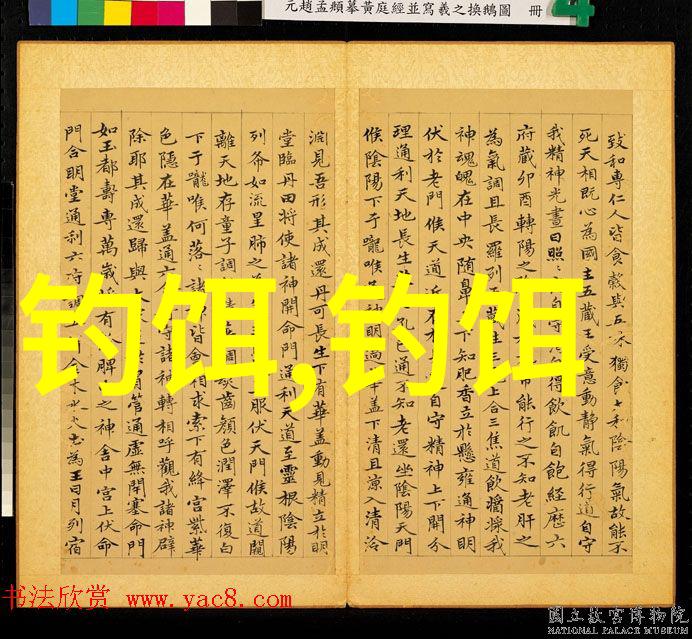 元趙孟頫摹黃庭經並寫羲之換鵝圖 冊
致和專仁人皆食穀與五味獨食太和陰陽氣故能不
死天相既心為國主五藏王受意動靜氣得行道自守
我精神光晝日照〻自守自得飲飢自飽經歷六
府藏卯酉轉陽之常能行之不知老肝之
為氣調且長羅列五藏生三上合三焦道飲醬漿我
神魂魄在中央随鼻下知肥香立於懸雍通神明
伏於老門候天道近在自守精神上下開分
理通利天地長生孔已通不知老還坐陰陽天門
候陰陽下于嚨喉神明過華盖下清且涼入清泠
淵見吾形其成還丹可長生下有華盖動見精立於明
堂臨丹田將使諸神開命門通利天道至靈根陰陽
列布如流星肺之為三上服伏天門候故道闚
離天地存童子調調髮齒顏色潤澤不復白
下于嚨喉何落〻諸皆會相求索下有絳宮紫華
色隱在華盖通六守諸神轉相呼觀我諸神辟
除耶其成還歸與大胃管通虛無閉塞命門
如玉都壽專萬歲將有脾之神舍中宮上伏命
門合明堂通利六府調五行金木水火土為王日月列宿
钓饵,钓饵
书法欣赏 www.yac8.com
國立故宮博物院
NATIONAL PALACE MUSEUM